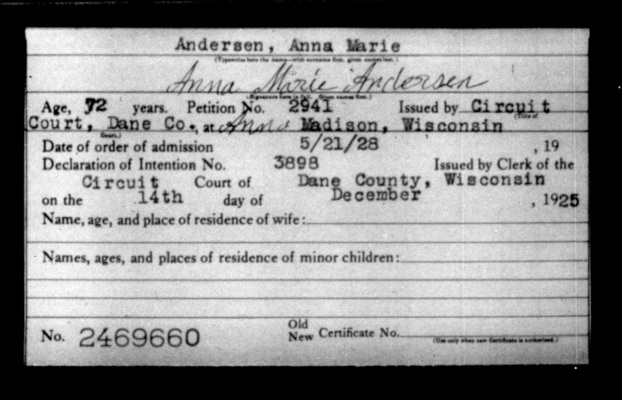 Andersen, Anna Marie
(Typewrite here the name—with surname first, given names last.)
Anna Marie Andersen
(Signature here in full. Given names first.)
Age, 72 years. Petition No. 2941 Issued by Circuit
(Title of
Court, Dane Co., at Anna Madison, Wisconsin
Court.)
Date of order of admission 5/21/28 , 19
Declaration of Intention No. 3898 Issued by Clerk of the
Circuit Court of Dane County, Wisconsin
on the 14th day of December , 1925
Name, age, and place of residence of wife:
Names, ages, and places of residence of minor children:
No. 2469660 Old New Certificate No.
(Use only when new Certificate is authorized.)